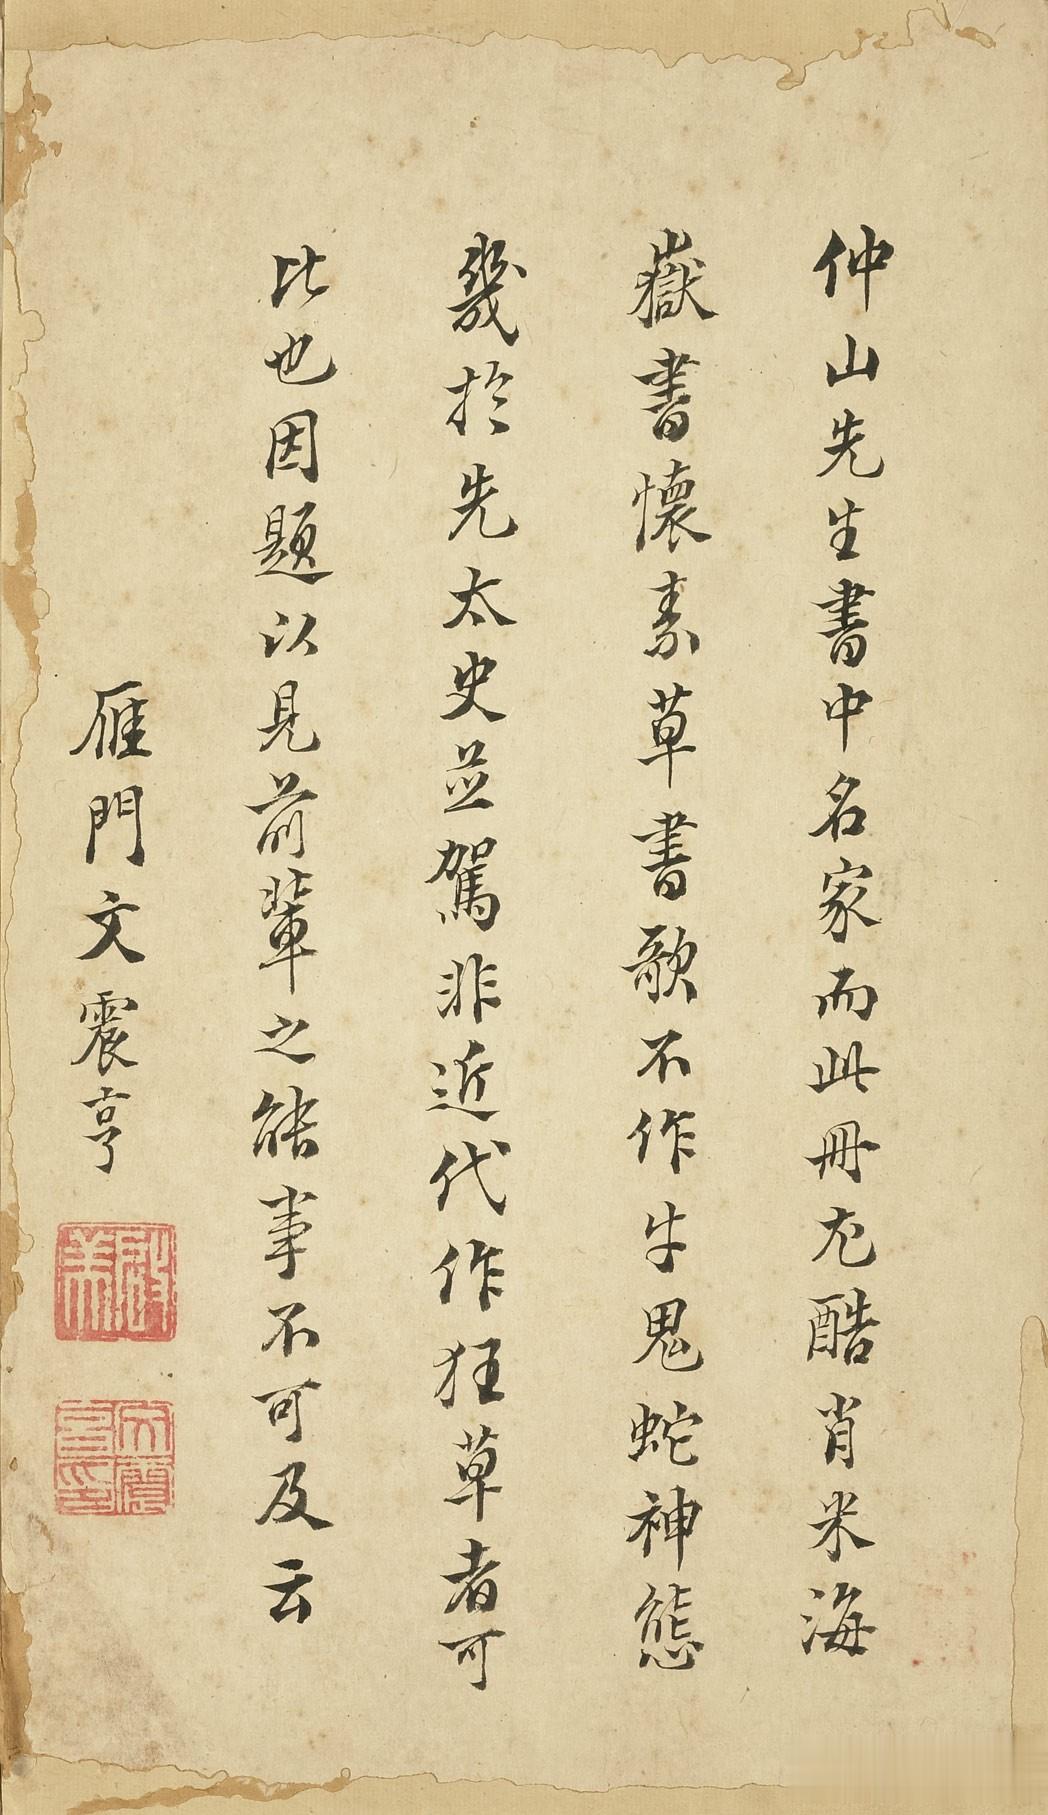 仲山先生書中名家而此冊尤酷肖米海
嶽書懷素草書歌不作牛鬼蛇神態
幾於先太史並駕非近代作狂草者可
比也因題以見前輩之能事不可及云
雁門文震亨
文震亨印